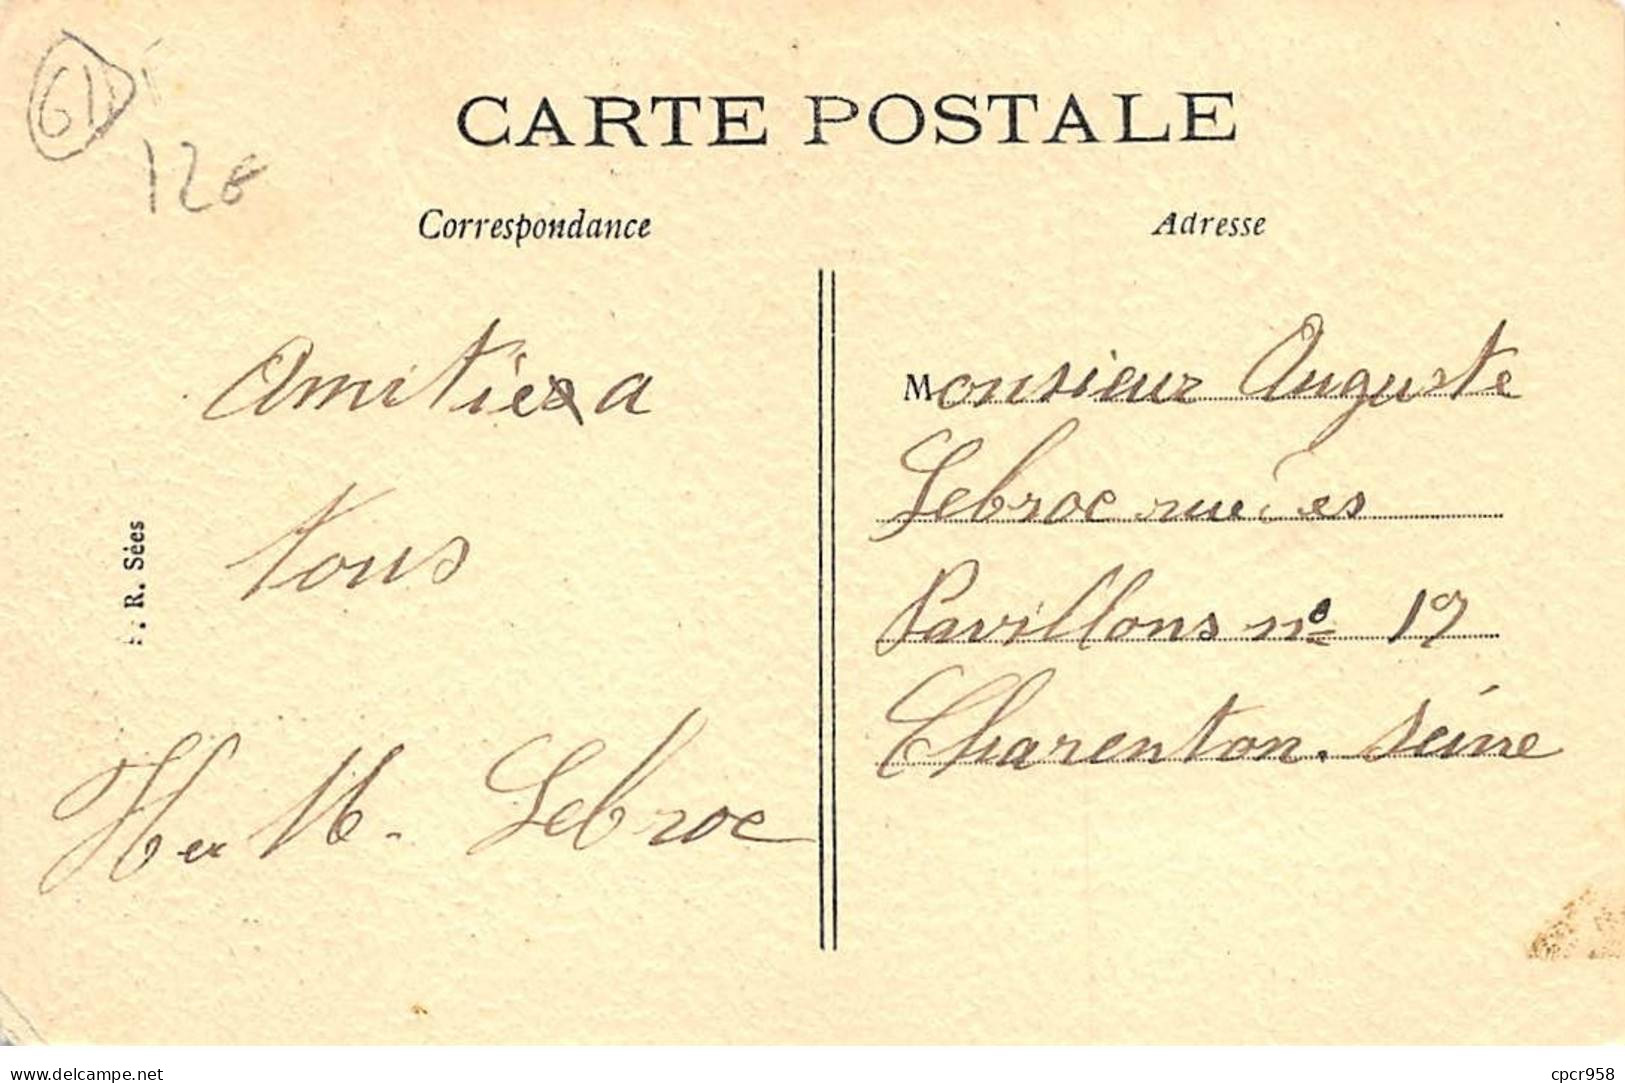 61
12€
CARTE POSTALE
Correspondance
Adresse
Amitiés a
tous
H et M. Lebroc
R. Sées
Monsieur Auguste
Lebroc rue des
Pavillons nº 19
Charenton. Seine
delcampe.net
cpcr958